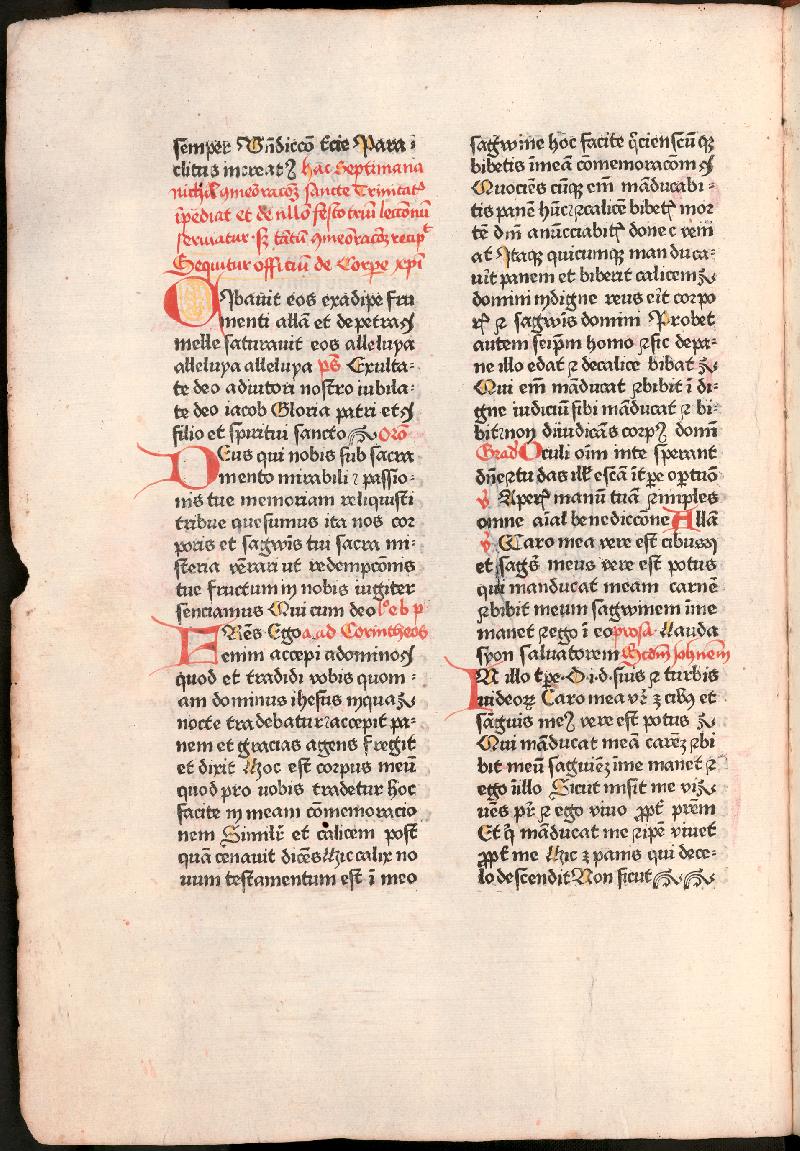 semper Vn̄diccō t͛cie Para ⁊
clitus increatꝰ hac Septimana
nichil ꝯmeōracōꝫ sancte Trinitatꝭ
īpediat et de nllo festo triū leccionū
seruiatur sꝫ tātū ꝯmeōracōꝫ recipit᷑
Sequitur officiū de Corpe xp̄i
CIbauit eos exadipe fru
menti allā et depetra ⸗
melle saturauit eos alleluya
alleluya alleluya ps̄ Exulta⸗
te deo adiutori nostro iubila⸗
te deo iacob Gloria patri et ⸗
filio et spiritui sancto orō
DEus qui nobis sub sacra
mento mirabili ꝛ passio⸗
nis tue memoriam reliquisti
tribue quesumus ita nos cor
poris et sāgwīs tui sacra mi⸗
steria vēnari ut redempcōnis
tue fructum in nobis iugiter
senciamus Qui cum deo l̓o eb p̄
FRēs Ego a ad Corintheos
enim accepi adomino ⸗
quod et tradidi vobis quom⸗
am dominus ihesus inqua ⸗
nocte tradebatur ꝛaccepit pa⸗
nem et gracias agens fregit
et dixit Hoc est corpus meū
quod pro uobis tradetur hoc
facite in meam cōmemoracio
nem Simil̛r et calicem post̄
quā cenauit dicēs Hic calix no
uum testamentum est ī meo
sāgwine hoc facite q̄ciensc̄ūqꝫ
bibetis īmeā cōmemoracōm ⸗
Quociēs cūqꝫ em̄ māducabi⸗
tis panē hūc ꝛcalicē bibet̛ mor
tē dn̄i anūcciabit̛ donec veīn
at Itaqꝫ quicumqꝫ manduca⸗
uīt panem et biberit calicem ⸗
domini indigne reus eīt corpo
rꝭ ꝛ sāgwīs domini Probet
autem seip̄m homo ꝛsic depa⸗
ne illo edat ꝛ decalice bibat ⸗
Qui em̄ māducat ꝛbibit ī di⸗
gne iudiciū sibi māducat ꝛ bi⸗
bit non diiudicās corpꝰ domī
Grad Oculi oīm inte sperant
dn̄e ꝛtu das ill̛ escā īt̄pe oportūo
℣ Aperꝭ manū tuā ꝛimples
omne aīal benediccōne Allā
℣ Caro mea vere est cibus
et sāgs̄ meus vere est potus
qui manducat meam carnē
ꝛbibit meum sāgwinem īme
manet ꝛego ī eo prosa Lauda
syon saluatorem Scd̄m johnem
IN illo t̄pe D i d suis ꝛ turbis
iudeoꝝ Caro mea v̄r̛ ꝫ cibꝰ et
sāguis meꝰ vere est potus ⸗
Qui māducat meā carēꝫ ꝛbi
bit meū saguiēꝫ īme manet ꝛ
ego īillo Sicut misit me vi⸗
uēs pr̄ ꝛ ego viuo ꝓpt̛ prēm
Et q̄ māducat me ꝛip̄e viuet
ꝓpt̛ me Hic ꝫ panis qui dece⸗
lo descendit Non sicut